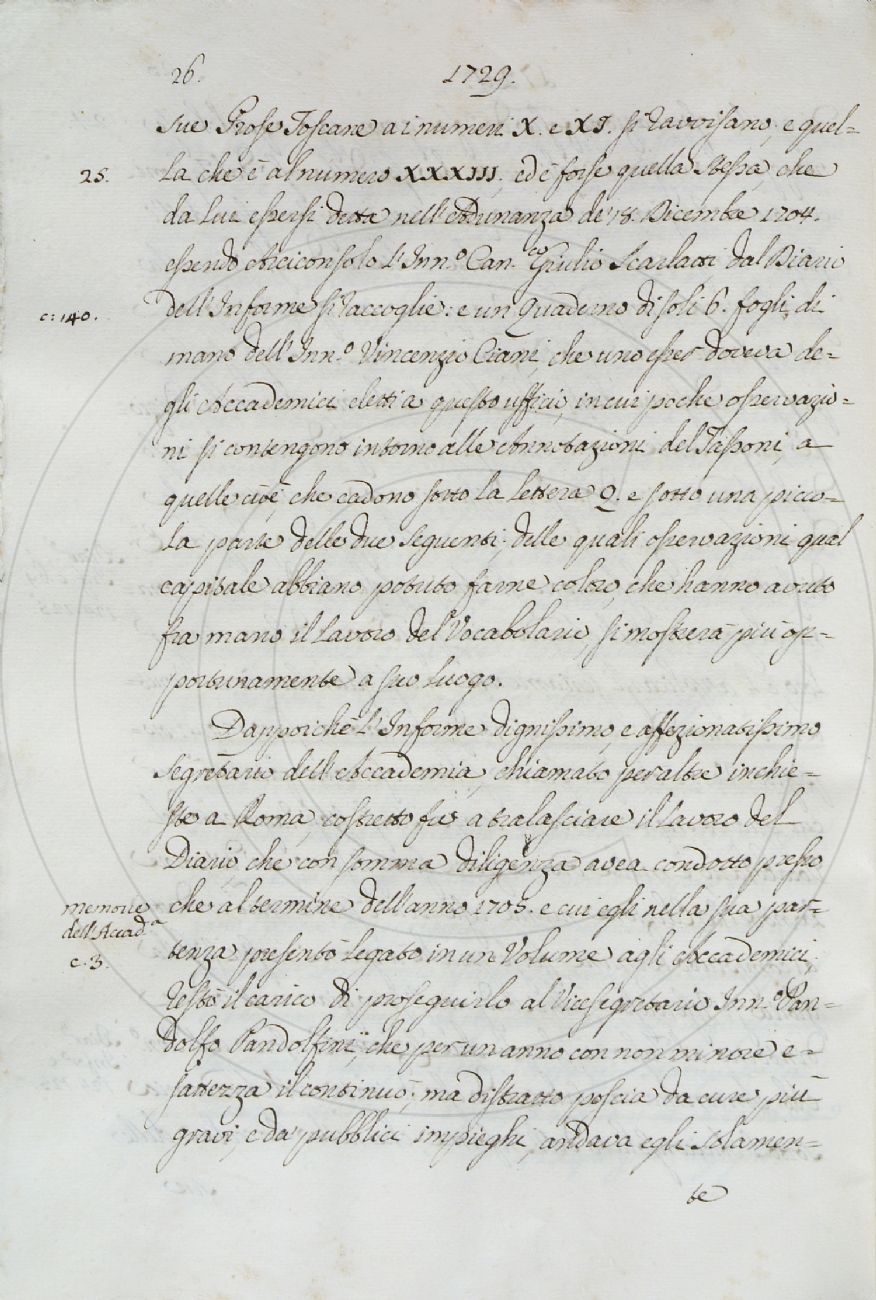 26.
1729.
sue Prose Toscane a i numeri X. e XI. si ravvisano, e quel=
25.
la che è al numero XXXIII, ed è forse quella stessa, che
da Lui essersi detta nell'Adunanza de' 18. Dicembre 1704.
essendo Arciconsolo l'Inn.º Can.co Giulio Scarlatti dal Diario
c: 140.
dell'Informe si raccoglie: e un Quaderno di soli 6. fogli di
mano dell'Inn.º Vincenzio Ciani, che uno esser doveva de=
gli Accademici eletti a questo uffici, in cui poche osservazio=
ni si contengono intorno alle Annotazioni del Tassoni, a
quelle cioè che cadono sotto la Lettera Q. e sotto una picco=
la parte delle due seguenti; delle quali osservazioni qual
capitale abbiano potuto farne coloro, che hanno avuto
fra mano il Lavoro del Vocabolario, si mostrerà più op=
portunamente a suo Luogo.
Dappoichè l'Informe dignissimo, e affezionatissimo
Segretario dell'Accademia, chiamato per altre inchie=
ste a Roma, costretto fu a tralasciare il Lavoro del
Diario, che con somma diligenza avea condotto presso
memorie
dell'Accad.a
c. 3.
che al termine dell'anno 1705. e cui egli nella sua par=
tenza presentò Legato in un Volume agli Accademici,
restò il carico di proseguirlo al Vicesegretario Inn.º Pan=
dolfo Pandolfini, che per un anno con non minore e=
sattezza il continuò; ma distratto poscia da cure più
gravi, e da' pubblici impieghi, andava egli solamen=
te